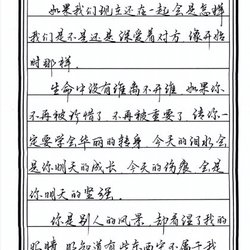 如果我们现在还在一起会是怎样
我们是不是还是深爱着对方 像开始
时那样.
生命中没有谁离不开谁 如果你
不再被珍惜了 不再被重要了 请你一
定要学会华丽的转身 今天的泪水会
是你明天的成长 今天的伤痕 会是
你明天的坚强.
你是别人的风景 却看湿了我的
眼睛 明知道有些东西它不属于我